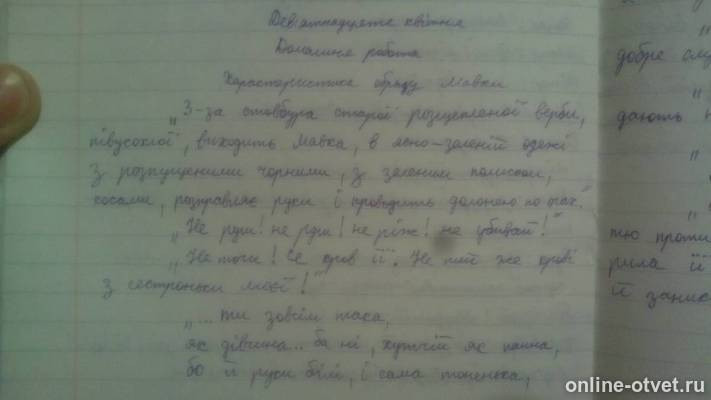 Дев'ятнадцяте квітня
Домашня робота
Характеристика образу Мавки
„З-за стовбура старої розщепленої верби,
півусохлої, виходить Мавка, в ясно-зеленій одежі
з розпущеними чорними, з зеленим полиском,
косами, розправляє руки і проводить долонею по очах."
„Не руш! не руш! не ріж! не убивай!"
„Не точи! Це кров її. Не пий же крові
з сестроньки моєї!"
„... ти зовсім така,
як дівчина.. ба ні, хутчій як панна,
бо й руки білі, і сама тоненька,
„
добре слу
дають н
„
„
тю проти
рила її
й заник
online-otvet.ru